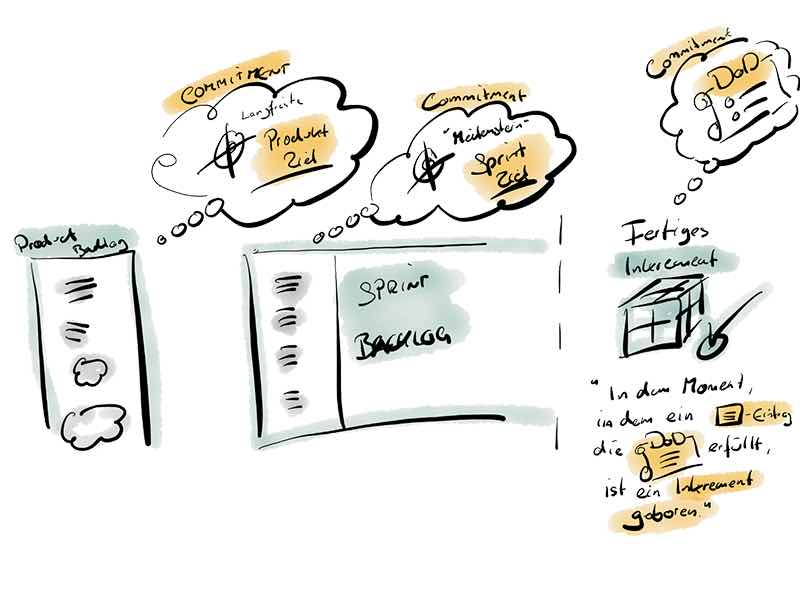 COMMITMENT
Langfristig
Produkt
Ziel
Commitment
"Meilenstein"
Sprint
Ziel
Commitment
DoD
Product
Backlog
SPRINT
BACKLOG
Fertiges
Inkrement
"In dem Moment,
in dem ein
-Eintrag
die DoD erfüllt,
ist ein Inkrement
geboren."